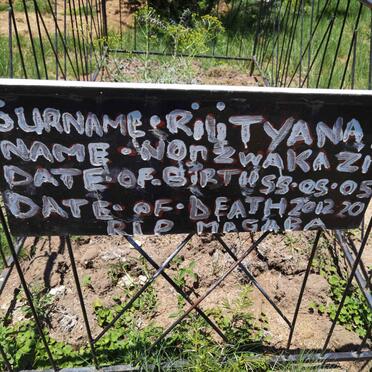 SURNAME·RIIITYANA
NAME·NOMZWAKAZI
DATE·OF·BIRTH 55·05·05
DATE·OF·DEATH 2012·20
RIP MAGABA